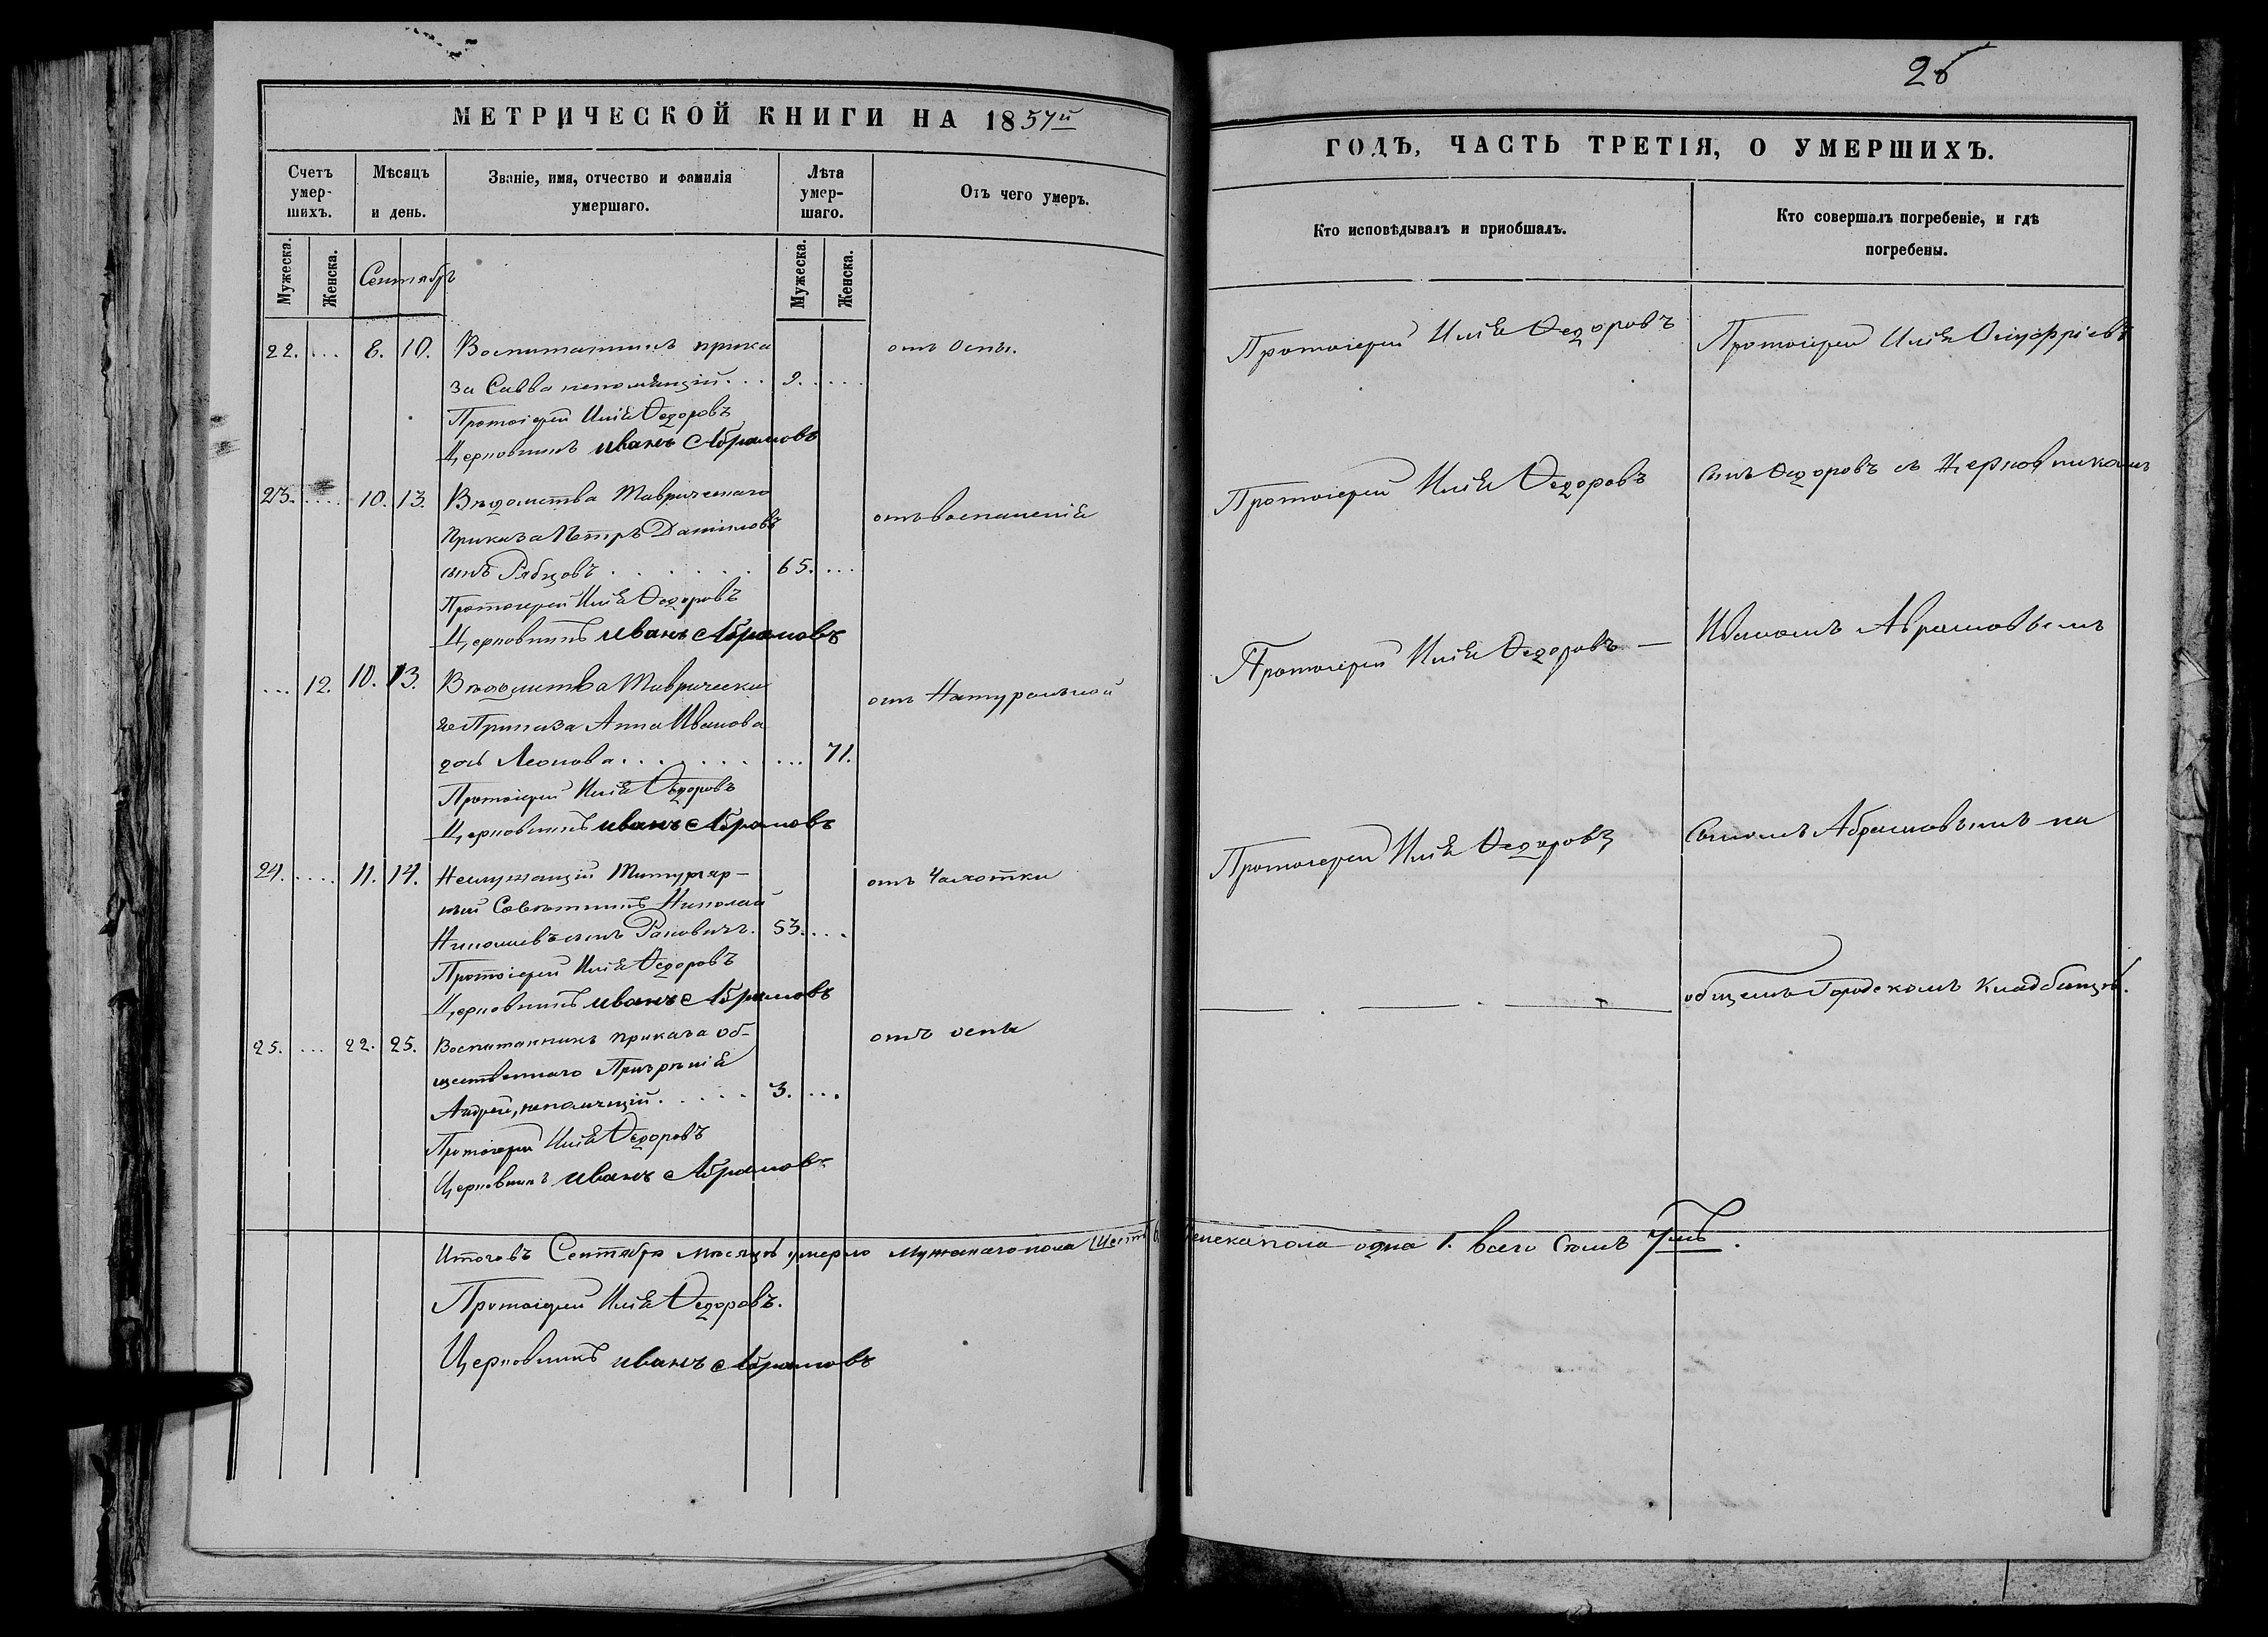 МЕТРИЧЕСКОЙ КНИГИ НА 1857й
Счетъ умер-шихъ.
Мѣсяцъ и день.
Званіе, имя, отчество и фамилія умершаго.
Лѣта умер-шаго.
Отъ чего умеръ.
Мужеска.
Женска.
Сентябрь
Мужеска.
Женска.
22. ... 8. 10. Воспитанникъ прика
за Савва непомнящій... 9. ... отъ Оспы.
Протоіерей Илія Ѳедоровъ
Церковникъ Иванъ Абрамовъ
23. ... 10. 13. Вѣдомства Таврическаго
приказа Петръ Даниловъ отъ воспаленія
сынъ Рябцовъ . . . . . . 65. ...
Протоіерей Илія Ѳедоровъ
Церковникъ Иванъ Абрамовъ
... 12. 10. 13. Вѣдомства Таврическа
го Приказа Анна Иванова отъ Натуральной
дочь Леонова . . . . . . ... 71.
Протоіерей Илія Ѳедоровъ
Церковникъ Иванъ Абрамовъ
24. ... 11. 14. Неслужащій Титуляр-
ный Совѣтникъ Николай отъ Чахотки
Николаевъ сынъ Раковичъ. 53. ...
Протоіерей Илія Ѳедоровъ
Церковникъ Иванъ Абрамовъ
25. ... 22. 25. Воспитанникъ приказа об-
щественнаго Призрѣнія отъ оспы
Андрей, непомнящій . . . . . 3. ...
Протоіерей Илія Ѳедоровъ
Церковникъ Иванъ Абрамовъ
Итого въ Сентябрѣ мѣсяцѣ умерло Мужескаго пола Шесть 6. Женска пола одна 1. всего семь 7мь.
Протоіерей Илія Ѳедоровъ.
Церковникъ Иванъ Абрамовъ
26
ГОДЪ, ЧАСТЬ ТРЕТІЯ, О УМЕРШИХЪ.
Кто исповѣдывалъ и приобшалъ.
Кто совершалъ погребеніе, и гдѣ погребены.
Протоіерей Илія Ѳедоровъ
Протоіерей Илія Онуфріевъ
Протоіерей Илія Ѳедоровъ
сынъ Ѳедоровъ съ Церковникомъ
Протоіерей Илія Ѳедоровъ —
Иваномъ Аврамовымъ
Протоіерей Илія Ѳедоровъ
сыномъ Абрамовымъ на
общемъ Городскомъ Кладбищѣ.